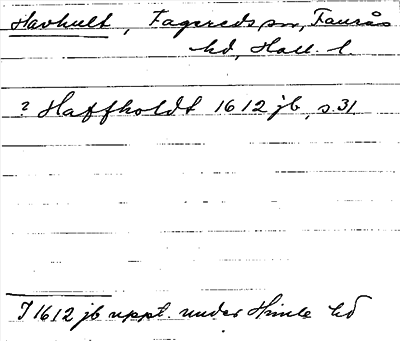 Havhult, Fagereds sn, Faurås
hd, Hall. l.
? Haffholdt 1612 jb, s. 31
I 1612 jb uppt. under Himle hd